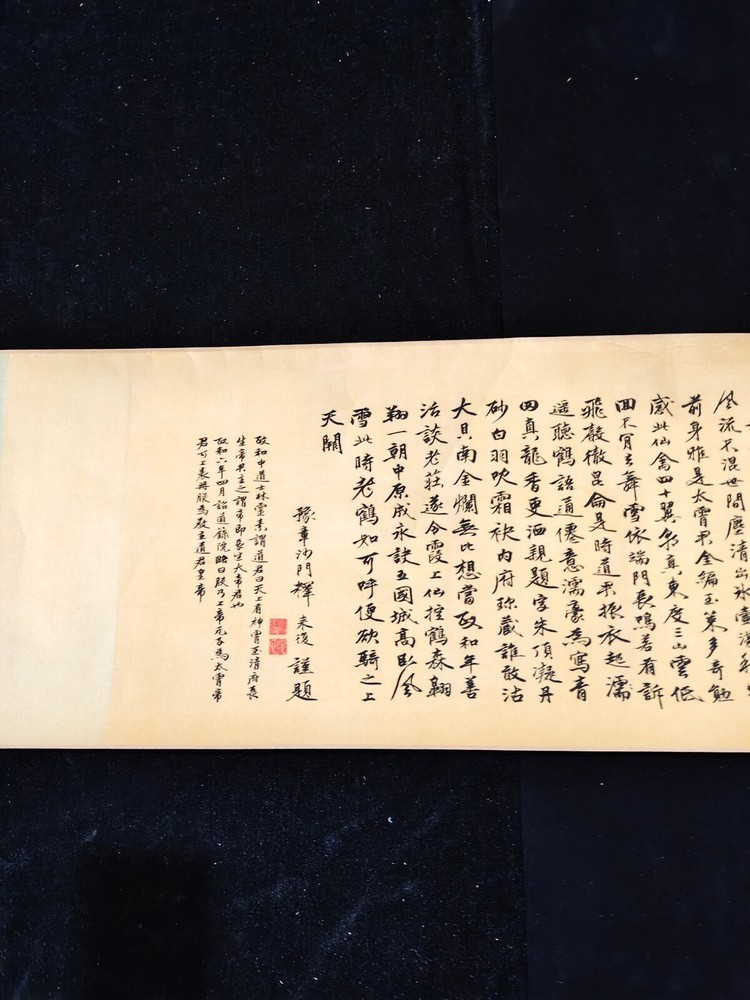 風流不混世間塵清出冰壺
前身雖是太霄君金編玉策多奇
感此仙禽四十翼 真東度三山雲低
回不肯去舞雪依端門長鳴若有訴
飛聲徹崑崙是時道君振衣起濡
遥聽鶴語通僊意濡豪為寫青
田真龍香更洒親題字朱頂凝丹
砂白羽吹霜袂内府珍藏誰敢沽
大貝南金爛無比想當政和年善
治談老莊遂令霞上仙控鶴森翱
翔一朝中原成永訣五國城高臥風
雪此時老鶴如可呼便欲騎之上
天闕
豫章沙門釋 来復 謹題
政和中道士林靈素謂道君曰天上有神霄玉清府長
生帝君主之謂帝即長生大帝君也
政和六年四月詔道錄院略曰朕乃上帝元子為太霄帝
君可上表冊朕為教主道君皇帝